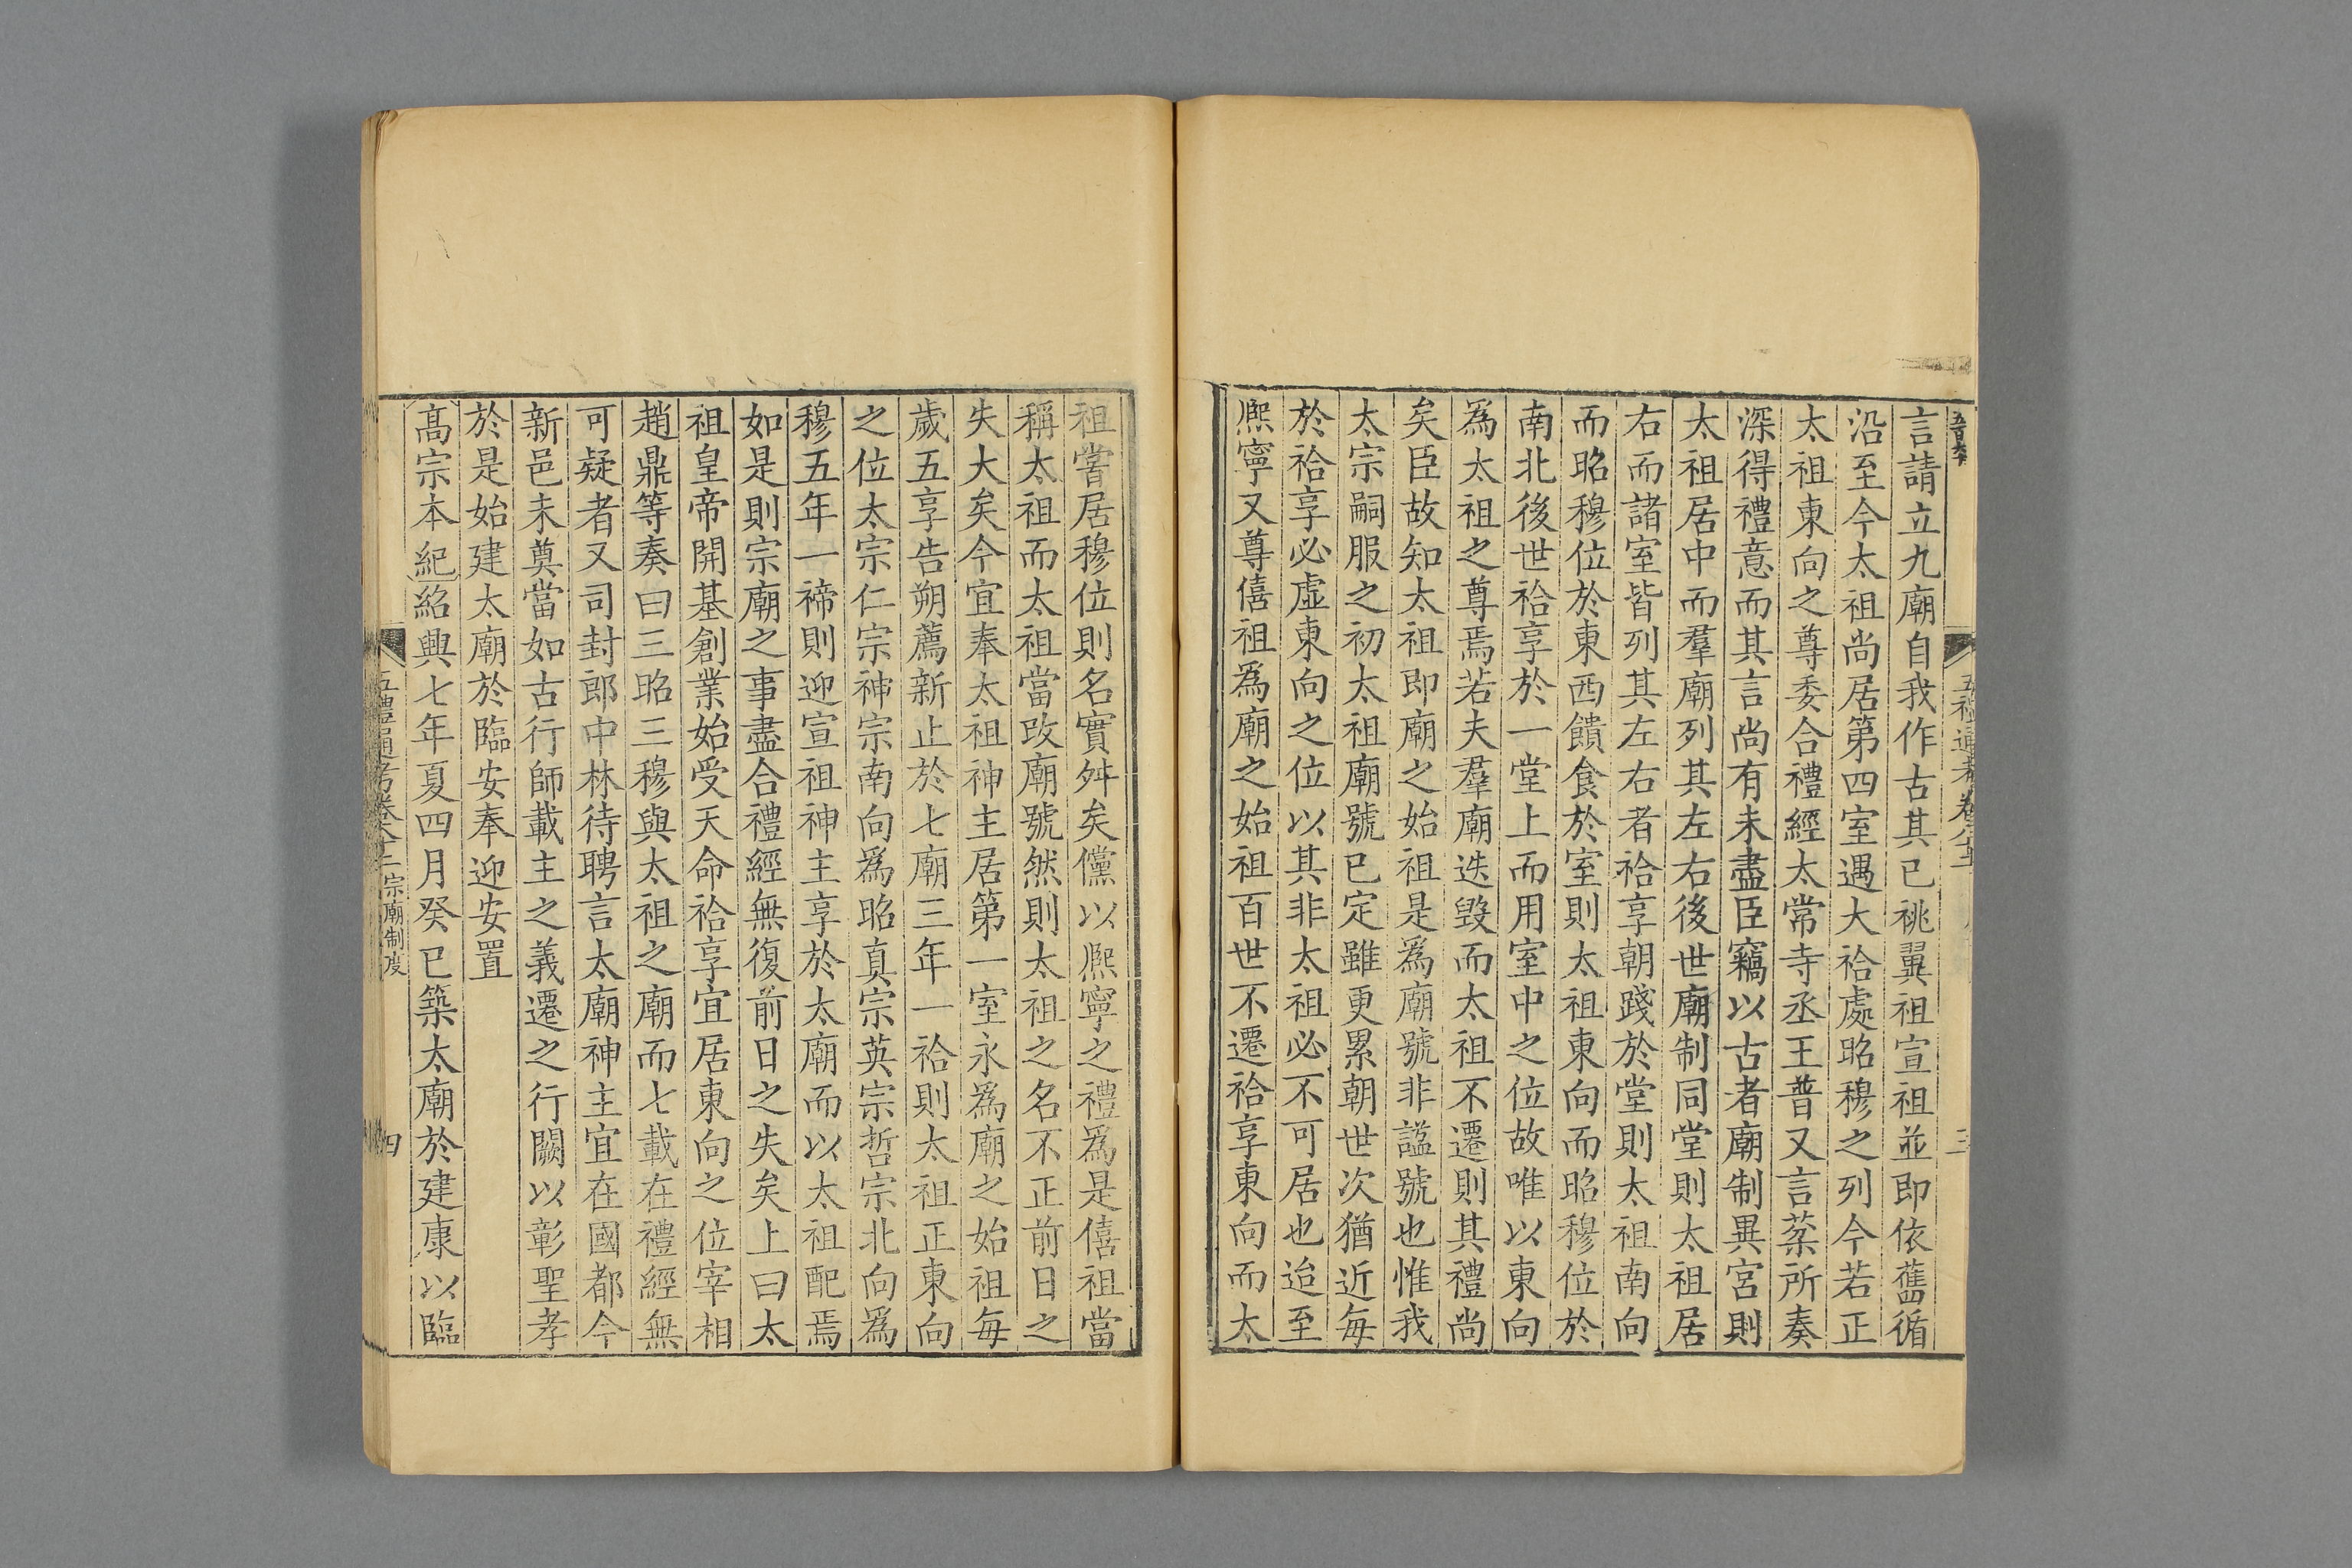 言請立九廟自我作古其已祧翼祖宣祖並即依舊循
沿至今太祖尚居第四室遇大祫處昭穆之列今若正
太祖東向之尊委合禮經太常寺丞王普又言棻所奏
深得禮意而其言尚有未盡臣竊以古者廟制異宮則
太祖居中而羣廟列其左右後世廟制同堂則太祖居
右而諸室皆列其左右者祫享朝踐於堂則太祖南向
而昭穆位於東西饋食於室則太祖東向而昭穆位於
南北後世祫享於一堂上而用室中之位故唯以東向
為太祖之尊焉若夫羣廟迭毀而太祖不遷則其禮尚
矣臣故知太祖即廟之始祖是為廟號非謚號也惟我
太宗嗣服之初太祖廟號已定雖更累朝世次猶近每
於祫享必虛東向之位以其非太祖必不可居也迨至
熈寧又尊僖祖為廟之始祖百世不遷祫享東向而太
祖嘗居穆位則名實舛矣儻以熈寧之禮為是僖祖當
稱太祖而太祖當改廟號然則太祖之名不正前日之
失大矣今宜奉太祖神主居第一室永為廟之始祖每
歲五享告朔薦新止於七廟三年一祫則太祖正東向
之位太宗仁宗神宗南向為昭真宗英宗哲宗北向為
穆五年一禘則迎宣祖神主享於太廟而以太祖配焉
如是則宗廟之事盡合禮經無復前日之失矣上曰太
祖皇帝開基創業始受天命祫享宜居東向之位宰相
趙鼎等奏曰三昭三穆與太祖之廟而七載在禮經無
可疑者又司封郎中林待聘言太廟神主宜在國都今
新邑未奠當如古行師載主之義遷之行闕以彰聖孝
於是始建太廟於臨安奉迎安置
高宗本紀紹興七年夏四月癸巳築太廟於建康以臨
五禮通考卷八十二 宗廟制度
四